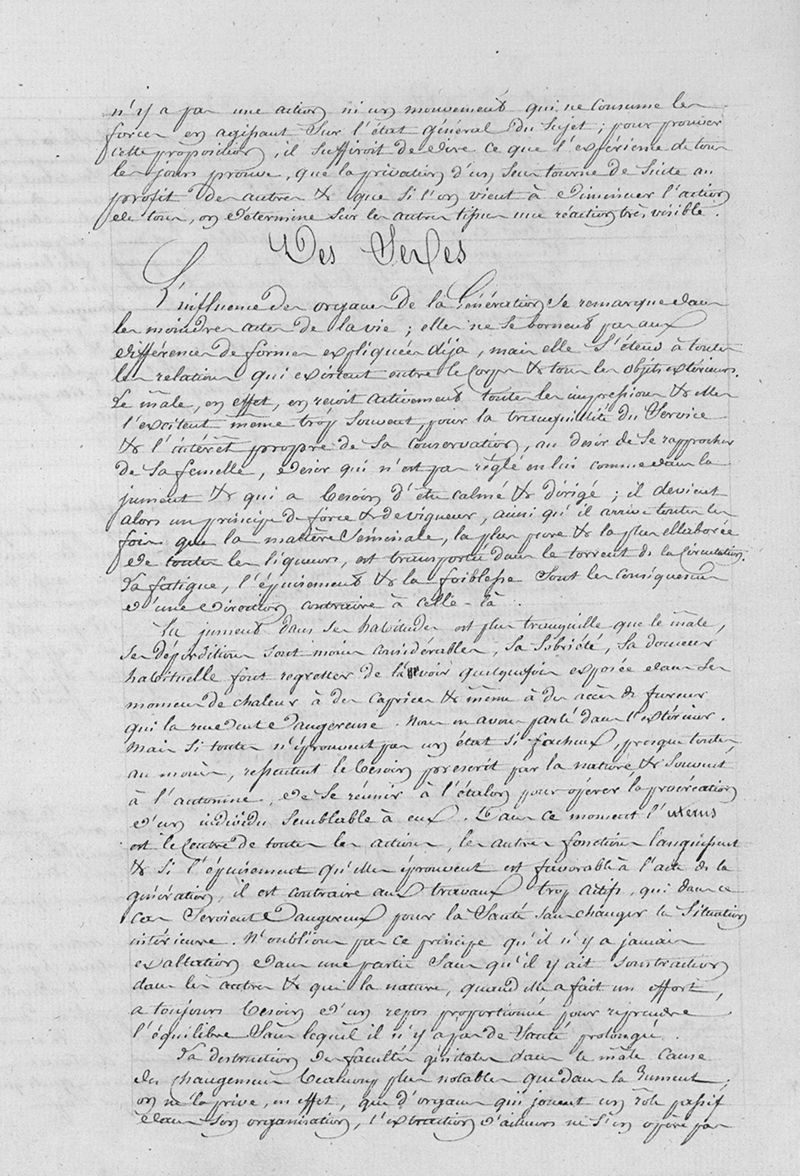 n'y a pas une action ni un mouvement qui ne consume les
forces en agissant sur l'état général du sujet ; pour prouver
cette proposition, il suffiroit de dire ce que l'expérience de tous
les jours prouve, que la privation d'un sens tourne de suite au
profit des autres & que si l'on vient à diminuer l'action
de tous, on détermine sur les autres tissus une réaction très visible.
Des Sexes
L'influence des organes de la Génération se remarque dans
les moindres actes de la vie ; elles ne se bornent pas aux
différences de formes expliquées déja, mais elle s'étend à toutes
les relations qui existent entre le Corps & tous les objets extérieurs.
Le mâle, en effet, en reçoit activement toutes les impressions & elles
l'excitent même trop souvent, pour la tranquillité du Service
& l'intérêt propre de sa conservation, au désir de se rapprocher
de sa femelle, désir qui n'est pas réglé en lui comme dans la
jument & qui a besoin d'être calmé & dirigé ; il devient
alors un principe de force & de vigueur, ainsi qu'il arrive toutes les
fois que la matière Séminale, la plus pure & la plus ellaborée
de toutes les liqueurs, est transportée dans le torrent de la Circulation.
La fatigue, l'épuisement & la foiblesse sont les conséquences
d'une direction contraire à celle-là.
La jument dans ses habitudes est plus tranquille que le mâle,
ses dépenditions sont moins considérables, sa sobriété, sa douceur
habituelle font regretter de la voir quelquefois exposée dans des
momens de chaleur à des caprices & même à des accès de fureur
qui la rendent dangereuse. Nous en avons parlé dans l'extérieur.
Mais si toutes n'éprouvent pas un état si facheux, presque toutes,
au moins, ressentent le besoin prescrit par la nature & souvent
à l'automne, de se réunir à l'étalon pour opérer la procréation
d'un individu semblable à eux. Dans ce moment l'uterus
est le Centre de toutes les actions, les autres fonctions languissent
& si l'épuisement qu'elles éprouvent est favorable à l'acte de la
génération, il est contraire aux travaux trop actifs, qui dans ce
cas seroient dangereux pour la Santé sans changer la situation
intérieure. N'oublions pas ce principe qu'il n'y a jamais
exaltation dans une partie sans qu'il y ait soustraction
dans les autres & que la nature, quand elle a fait un effort,
a toujours besoin d'un repos proportionné pour reprendre
l'équilibre sans lequel il n'y a pas de Santé prolongée.
La destruction des facultés génitales dans le mâle cause
des changemens beaucoup plus notables que dans la Jument ;
on ne la prive, en effet, que d'organes qui jouent un rôle passif
dans son organisation, l'extraction d'ailleurs ne s'en opère pas